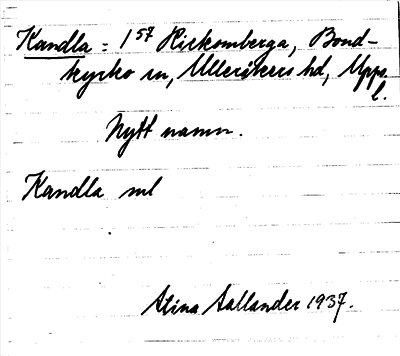 Kandla = 1⁵⁷ Kirkomberga, Bond-
kyrko sn, Ulleråkers hd, Upps.
l.
Nytt namn.
Kandla ml
Stina Sallander 1937.